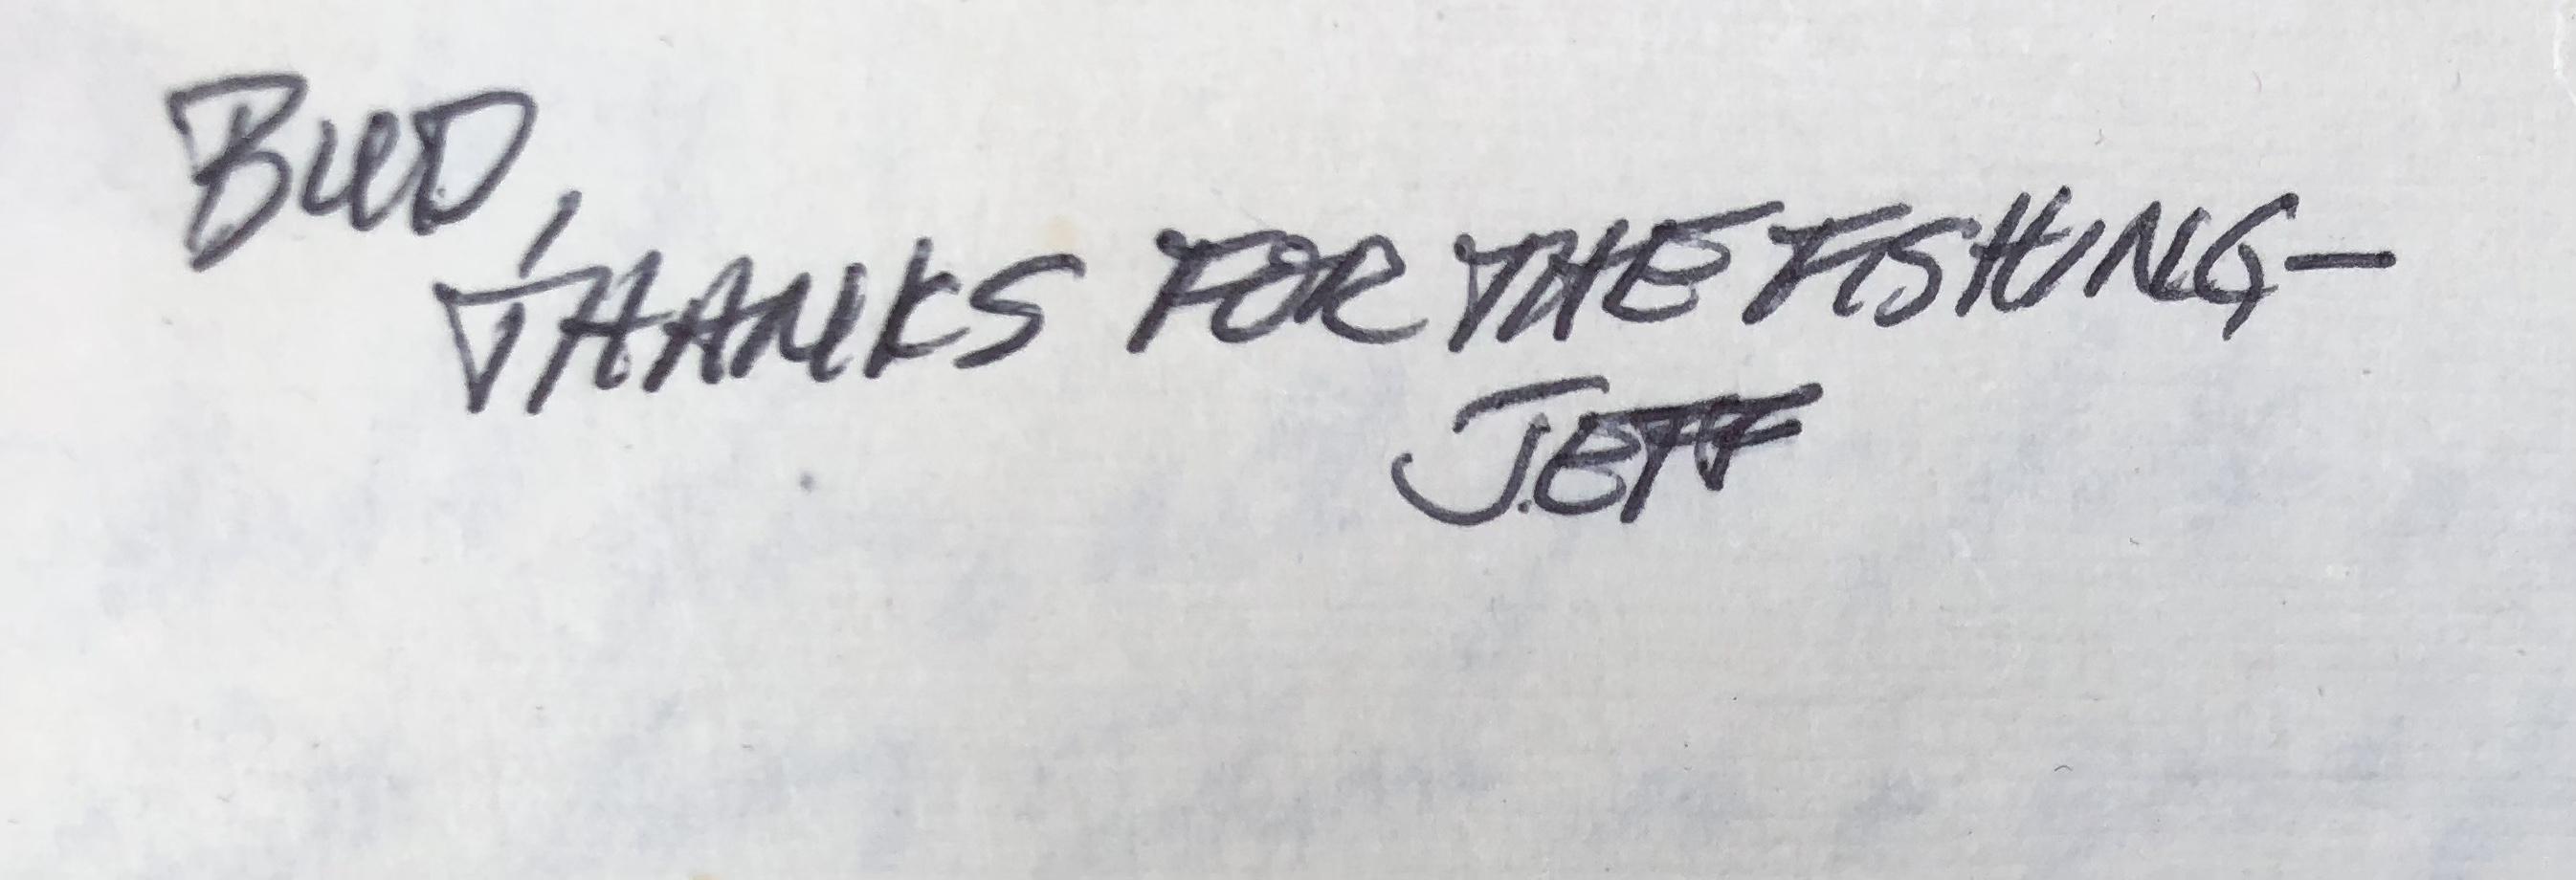 BUD,
THANKS FOR THE FISHING—
JEFF